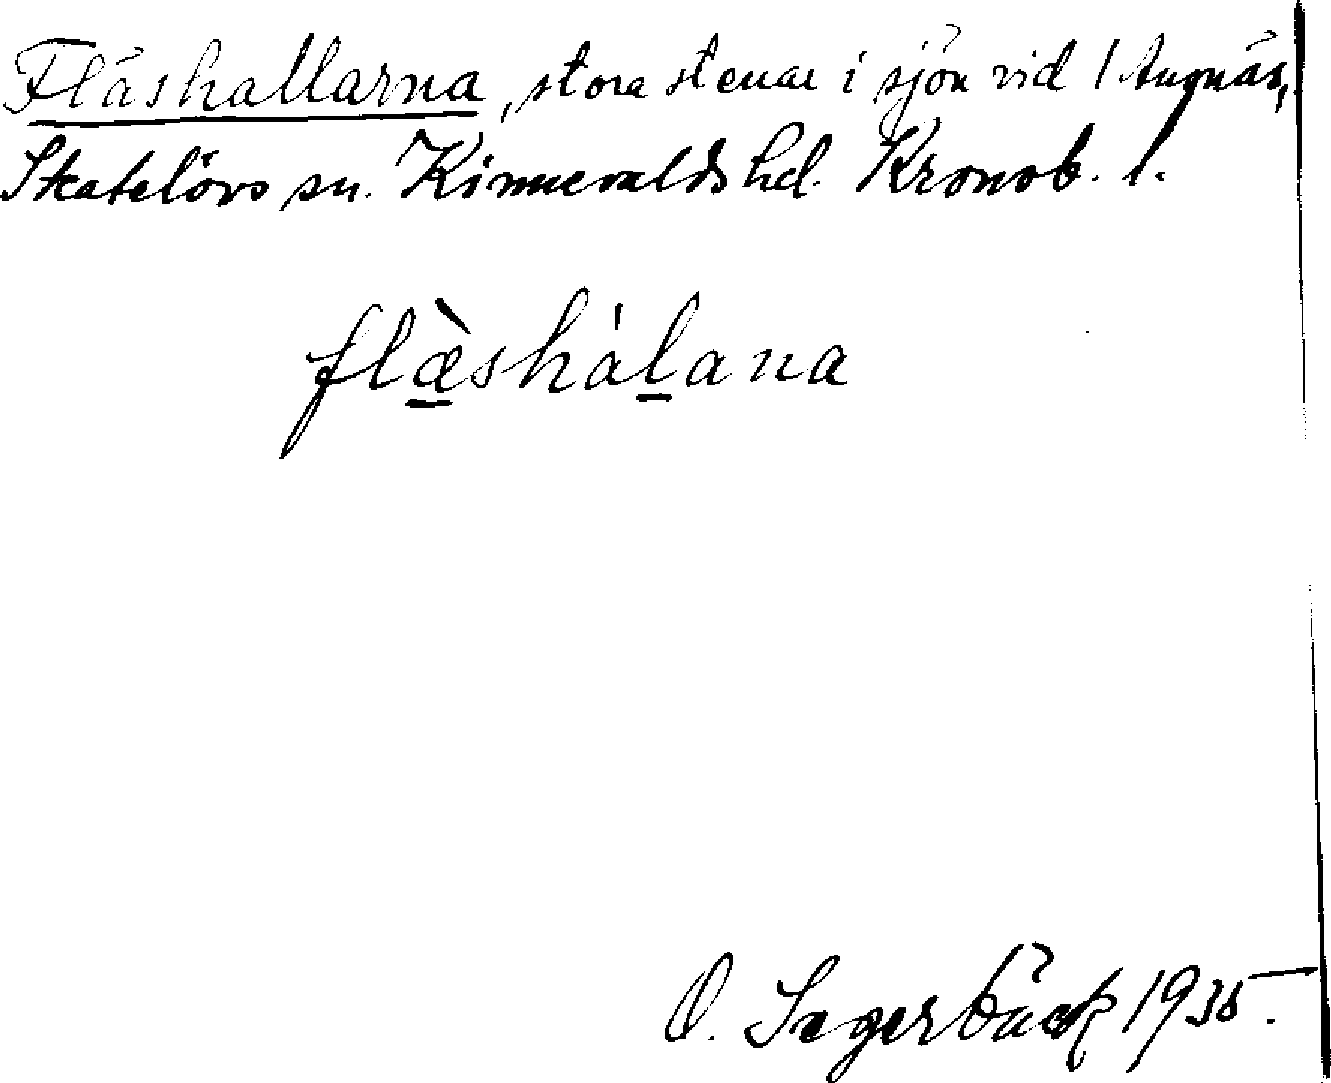 Fläshallarna, stora stenar i sjön vid
Skatelövs sn. Kinnevalds hd. Kronob. l.
flæ̀shálana
O. Sagerbäck 1935.